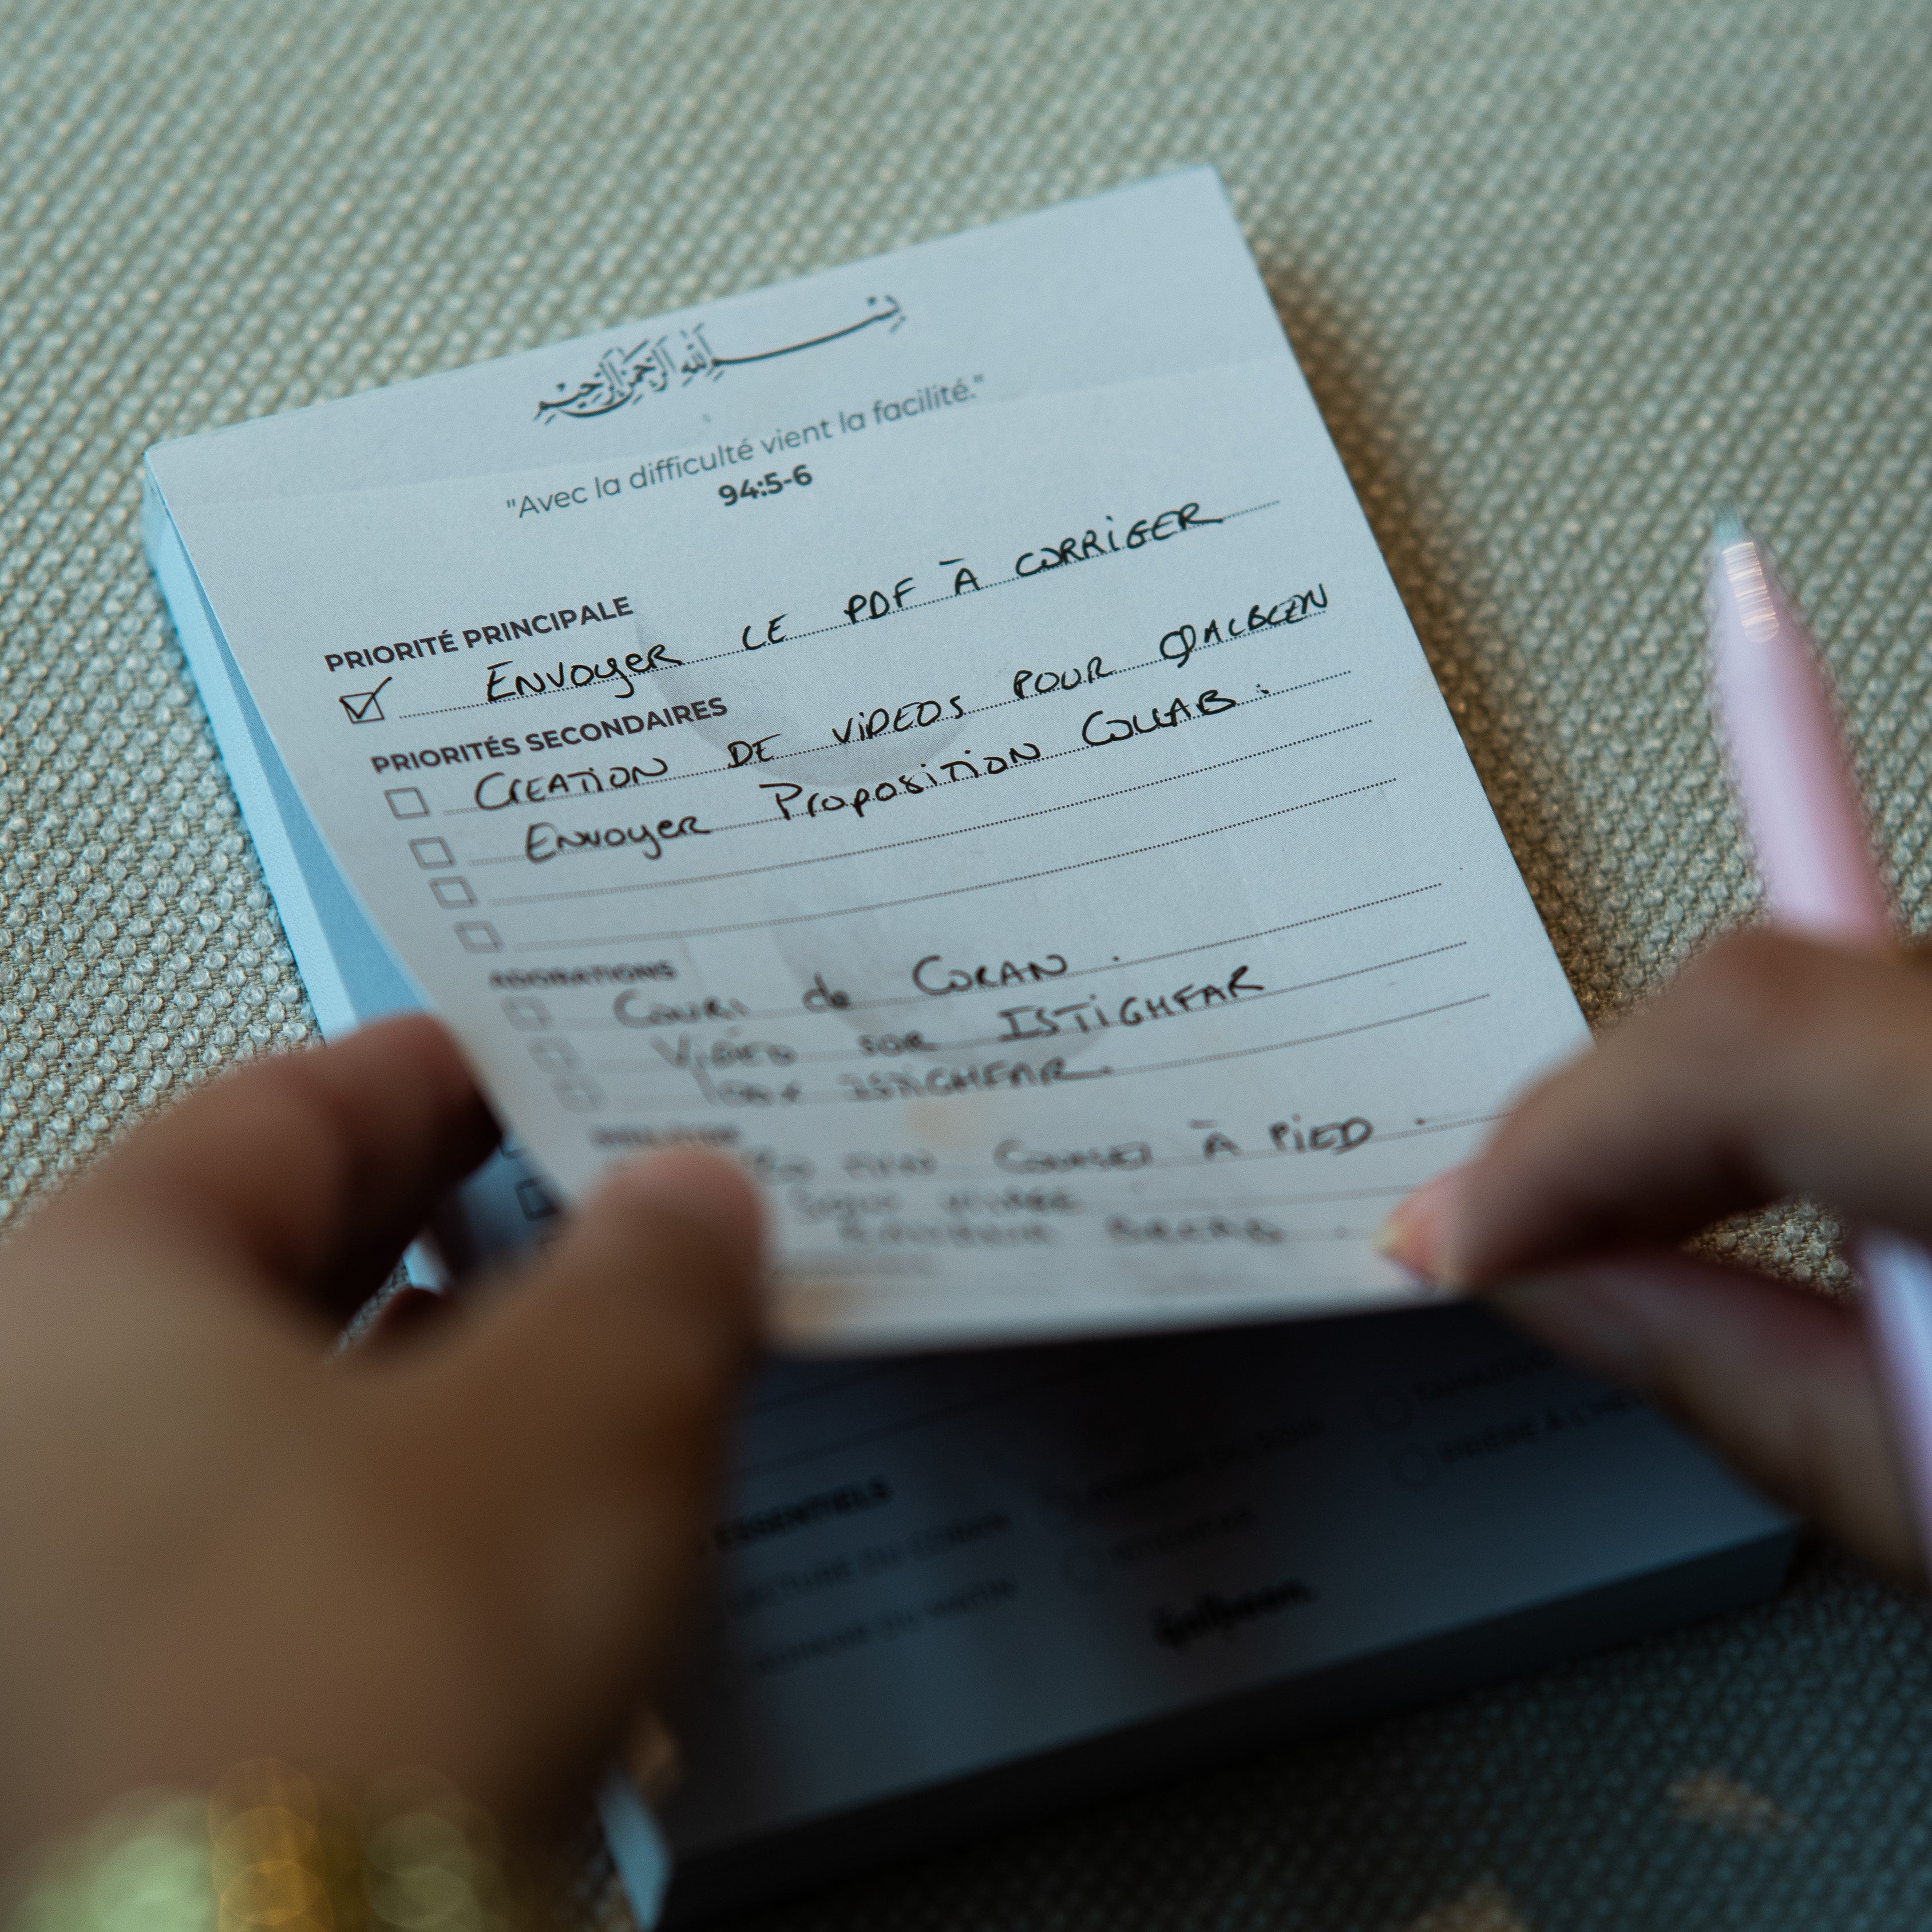 بسم الله الرحمن الرحيم
"Avec la difficulté vient la facilité."
94:5-6
PRIORITÉ PRINCIPALE
ENVOYER LE PDF À CORRIGER
PRIORITÉS SECONDAIRES
CREATION DE VIDEOS POUR QALBEEN
ENVOYER PROPOSITION COLLAB.
ADORATIONS
COURS de CORAN.
VIDÉO SUR ISTIGHFAR
ISTIGHFAR.
À PIED.
ESSENTIELS
LECTURE DU CORAN
qalbeen.